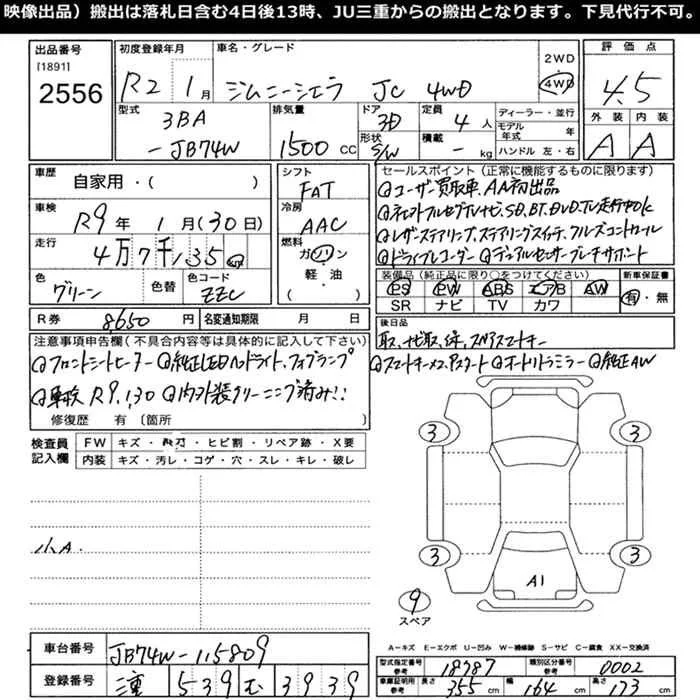 映像出品）搬出は落札日含む4日後13時、JU三重からの搬出となります。下見代行不可。
出品番号
[1891]
2556
初度登録年月
R2 1月
車名・グレード
ジムニーシエラ JC 4WD
2WD
4WD
評価点
4.5
型式
3BA
-JB74W
排気量
1500 CC
ドア
3D
形状
S/W
定員
4 人
積載
- kg
ディーラー・並行
モデル年式 年
ハンドル 左・右
外装 内装
A A
車歴
自家用・( )
車検
R9 年 1月(30日)
走行
4万7千135 km
色
グリーン
色替
色コード
ZZC
シフト
FAT
冷房
AAC
燃料
ガソリン
軽・油
( )
セールスポイント（正常に機能するものに限ります）
◎ユーザー買取車、AA初出品
◎ストラーダフルセグTVナビ、SD、BT、DVD、TV走行中OK
◎レザーステアリング、ステアリングスイッチ、クルーズコントロール
◎ドライブレコーダー ◎デュアルセンサーブレーキサポート
装備品（純正品に限り○をつけてください）
PS PW ABS エアB AW
SR ナビ TV カワ
新車保証書
有・無
R券 8650 円
名変通知期限 月 日
後日品
取、ナビ取、保、スペアスマートキー
注意事項申告欄（不具合内容等は具体的に記入して下さい）
◎フロントシートヒーター ◎純正LEDヘッドライト、フォグランプ
◎スマートキー×2、Pスタート ◎オートリトラミラー ◎純正AW
◎車検R9.1.30 ◎内外装クリーニング済み!!
修復歴 有 〔箇所
検査員記入欄
FW キズ・飛石・ヒビ割・リペア跡・X要
内装 キズ・汚レ・コゲ・穴・スレ・キレ・破レ
小A.
3
3
3
3
A1
9
スペア
A－キズ E－エクボ U－凹み W－補修跡 S－サビ C－腐食 XX－交換済
車台番号
JB74W-115809
登録番号
三重 539 む 3939
型式指定番号
参考
18787
類別区分番号
参考
0002
車庫証明用
参考
長さ 355 cm
幅 164 cm
高さ 173 cm